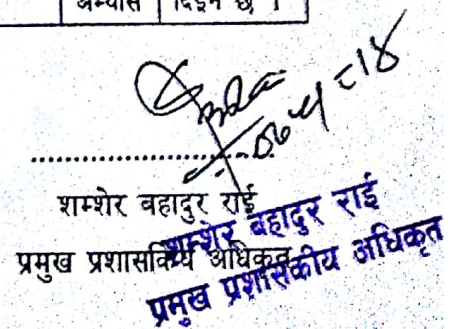 अभ्यास दिइने छ ।
शम्शेर बहादुर राई
प्रमुख प्रशासकिय अधिकृत
शम्शेर बहादुर राई
प्रमुख प्रशासकीय अधिकृत